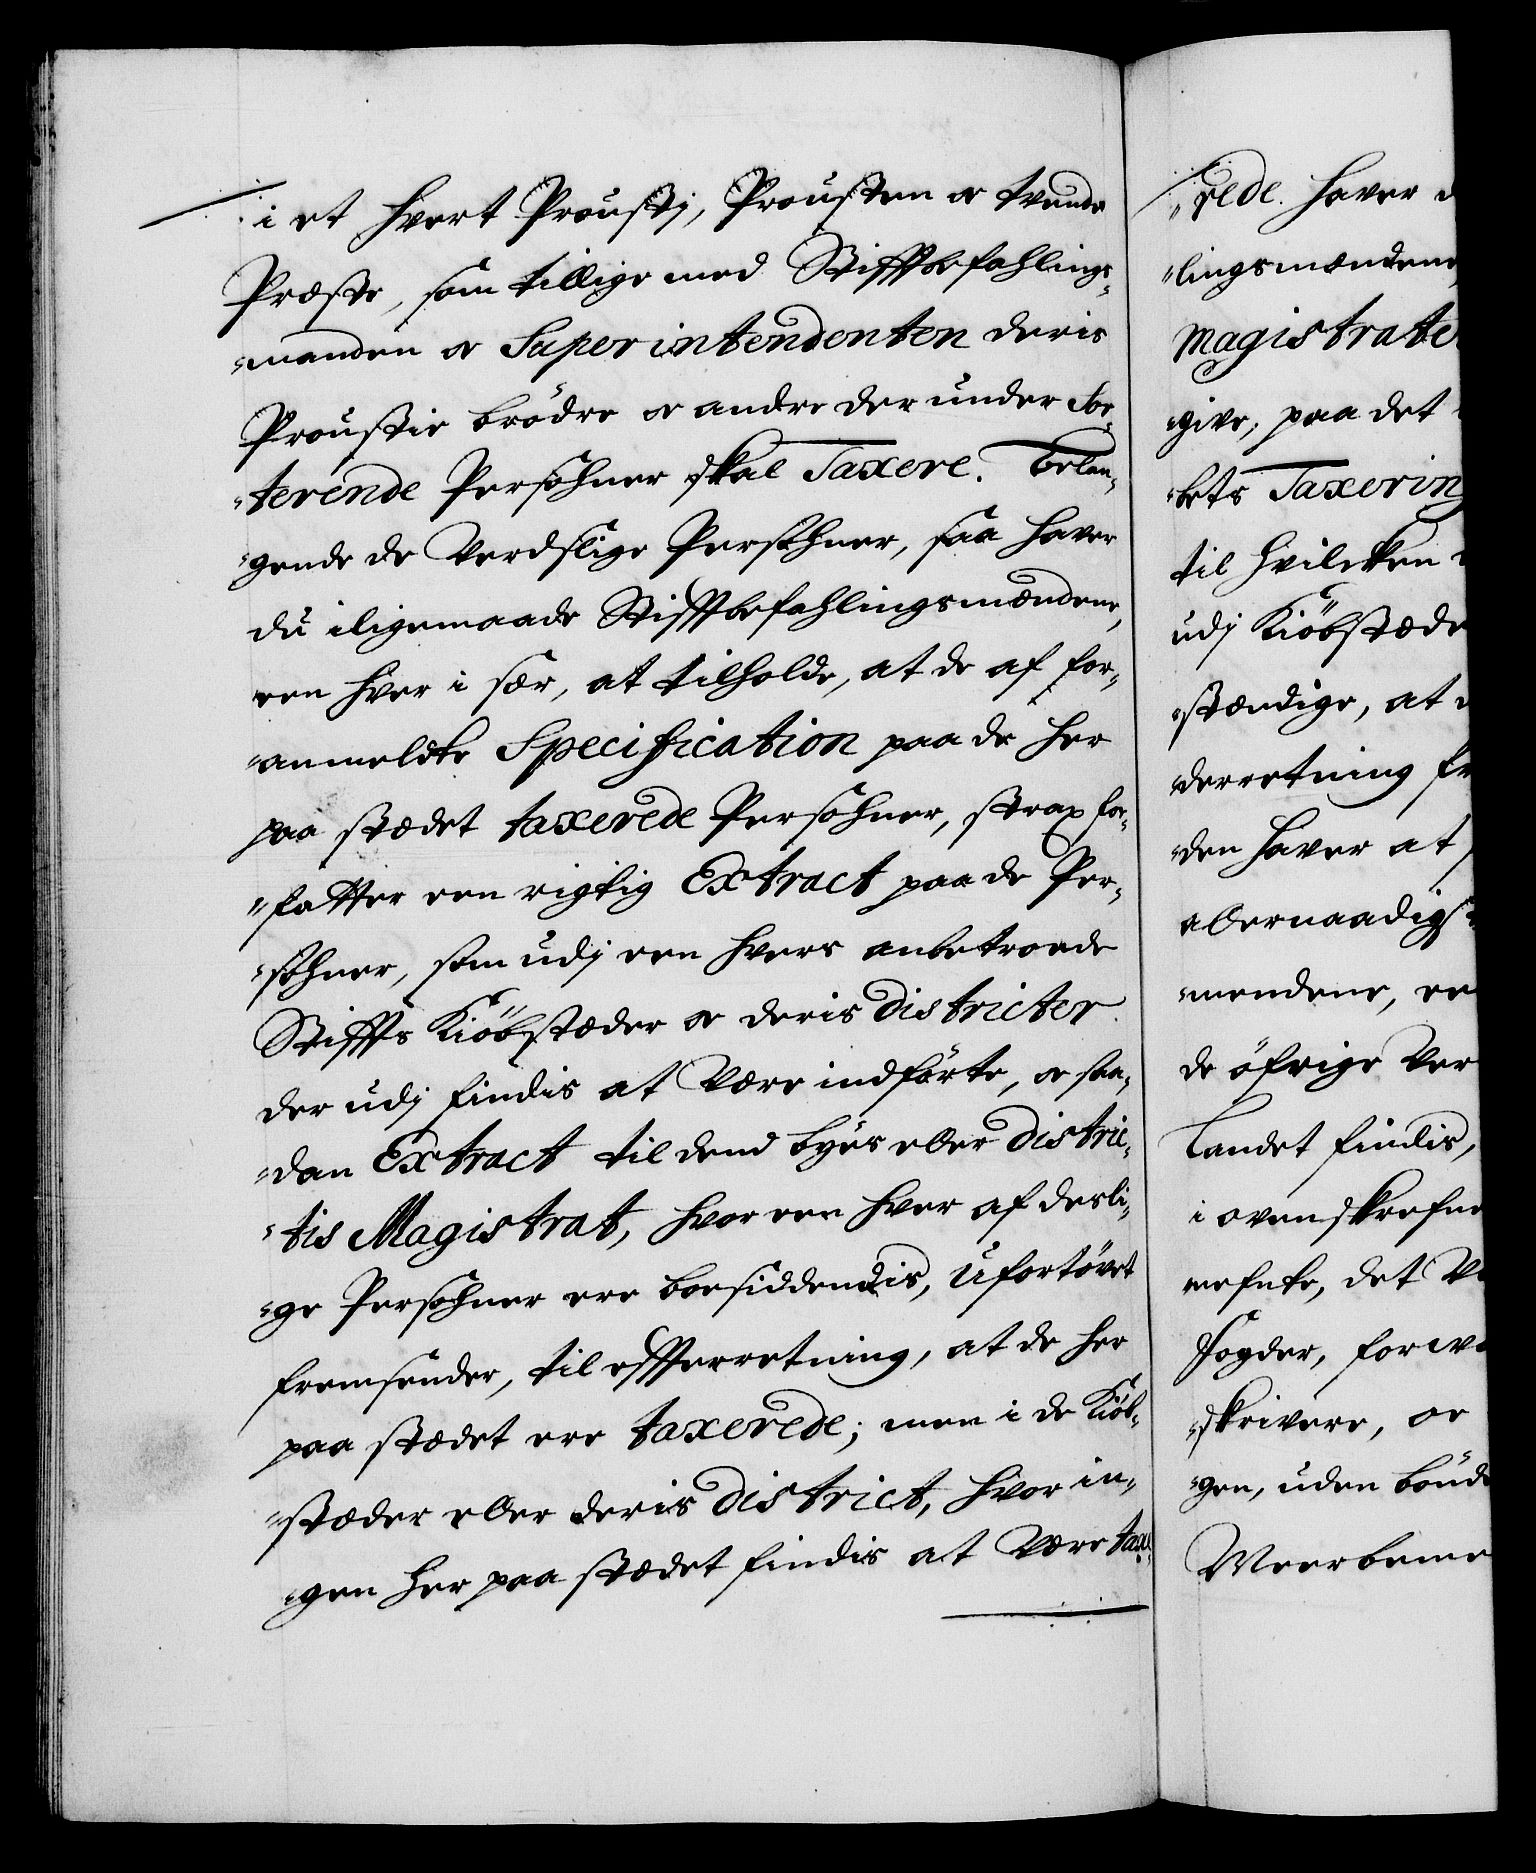 i et hvert Proustj, Prousten oc tvende
Præste, som tillige med Stifftbefahlings-
manden oc Superintendenten deris
Proustie brødre oc andre der under Sor-
terende Persohner skal Taxere. Belan-
gende de Verdslige Persohner, saa haver
du iligemaade Stifftbefahlingsmændene,
een hver i sær, at tilholde, at de af for-
anmeldte Specification paa de her
paa stædet taxerede Persohner, strax for-
fatter een rigtig Extract paa de Per-
sohner, som udj een hvers anbetroede
Stiffts Kiöbstæder oc deris districter
der udj findis at være indförte, oc saa-
dan Extract til dend byes eller distric-
tis Magistrat, hvor een hver af desli-
ge Persohner ere boesiddendis, Ufortövet
fremsender, til efftterretning, at de her
paa stædet ere taxerede; men i de Kiöb-
stæder eller deris district, hvor in-
gen her paa stædet findis at være taxe-
rede. haver d
lingsmændene,
Magistrate
give, paa det
bets Taxering
til hvilcken
udj Kiöbstæde
stændige, at
derretning fr
den haver at
allernaadigst
mendene, ee
de öfrige Ver
Landet findis,
i ovenskrefne
nefnte, det V
Fogder, forwa
skrivere, oc
gen, uden bönd
Meerbeme